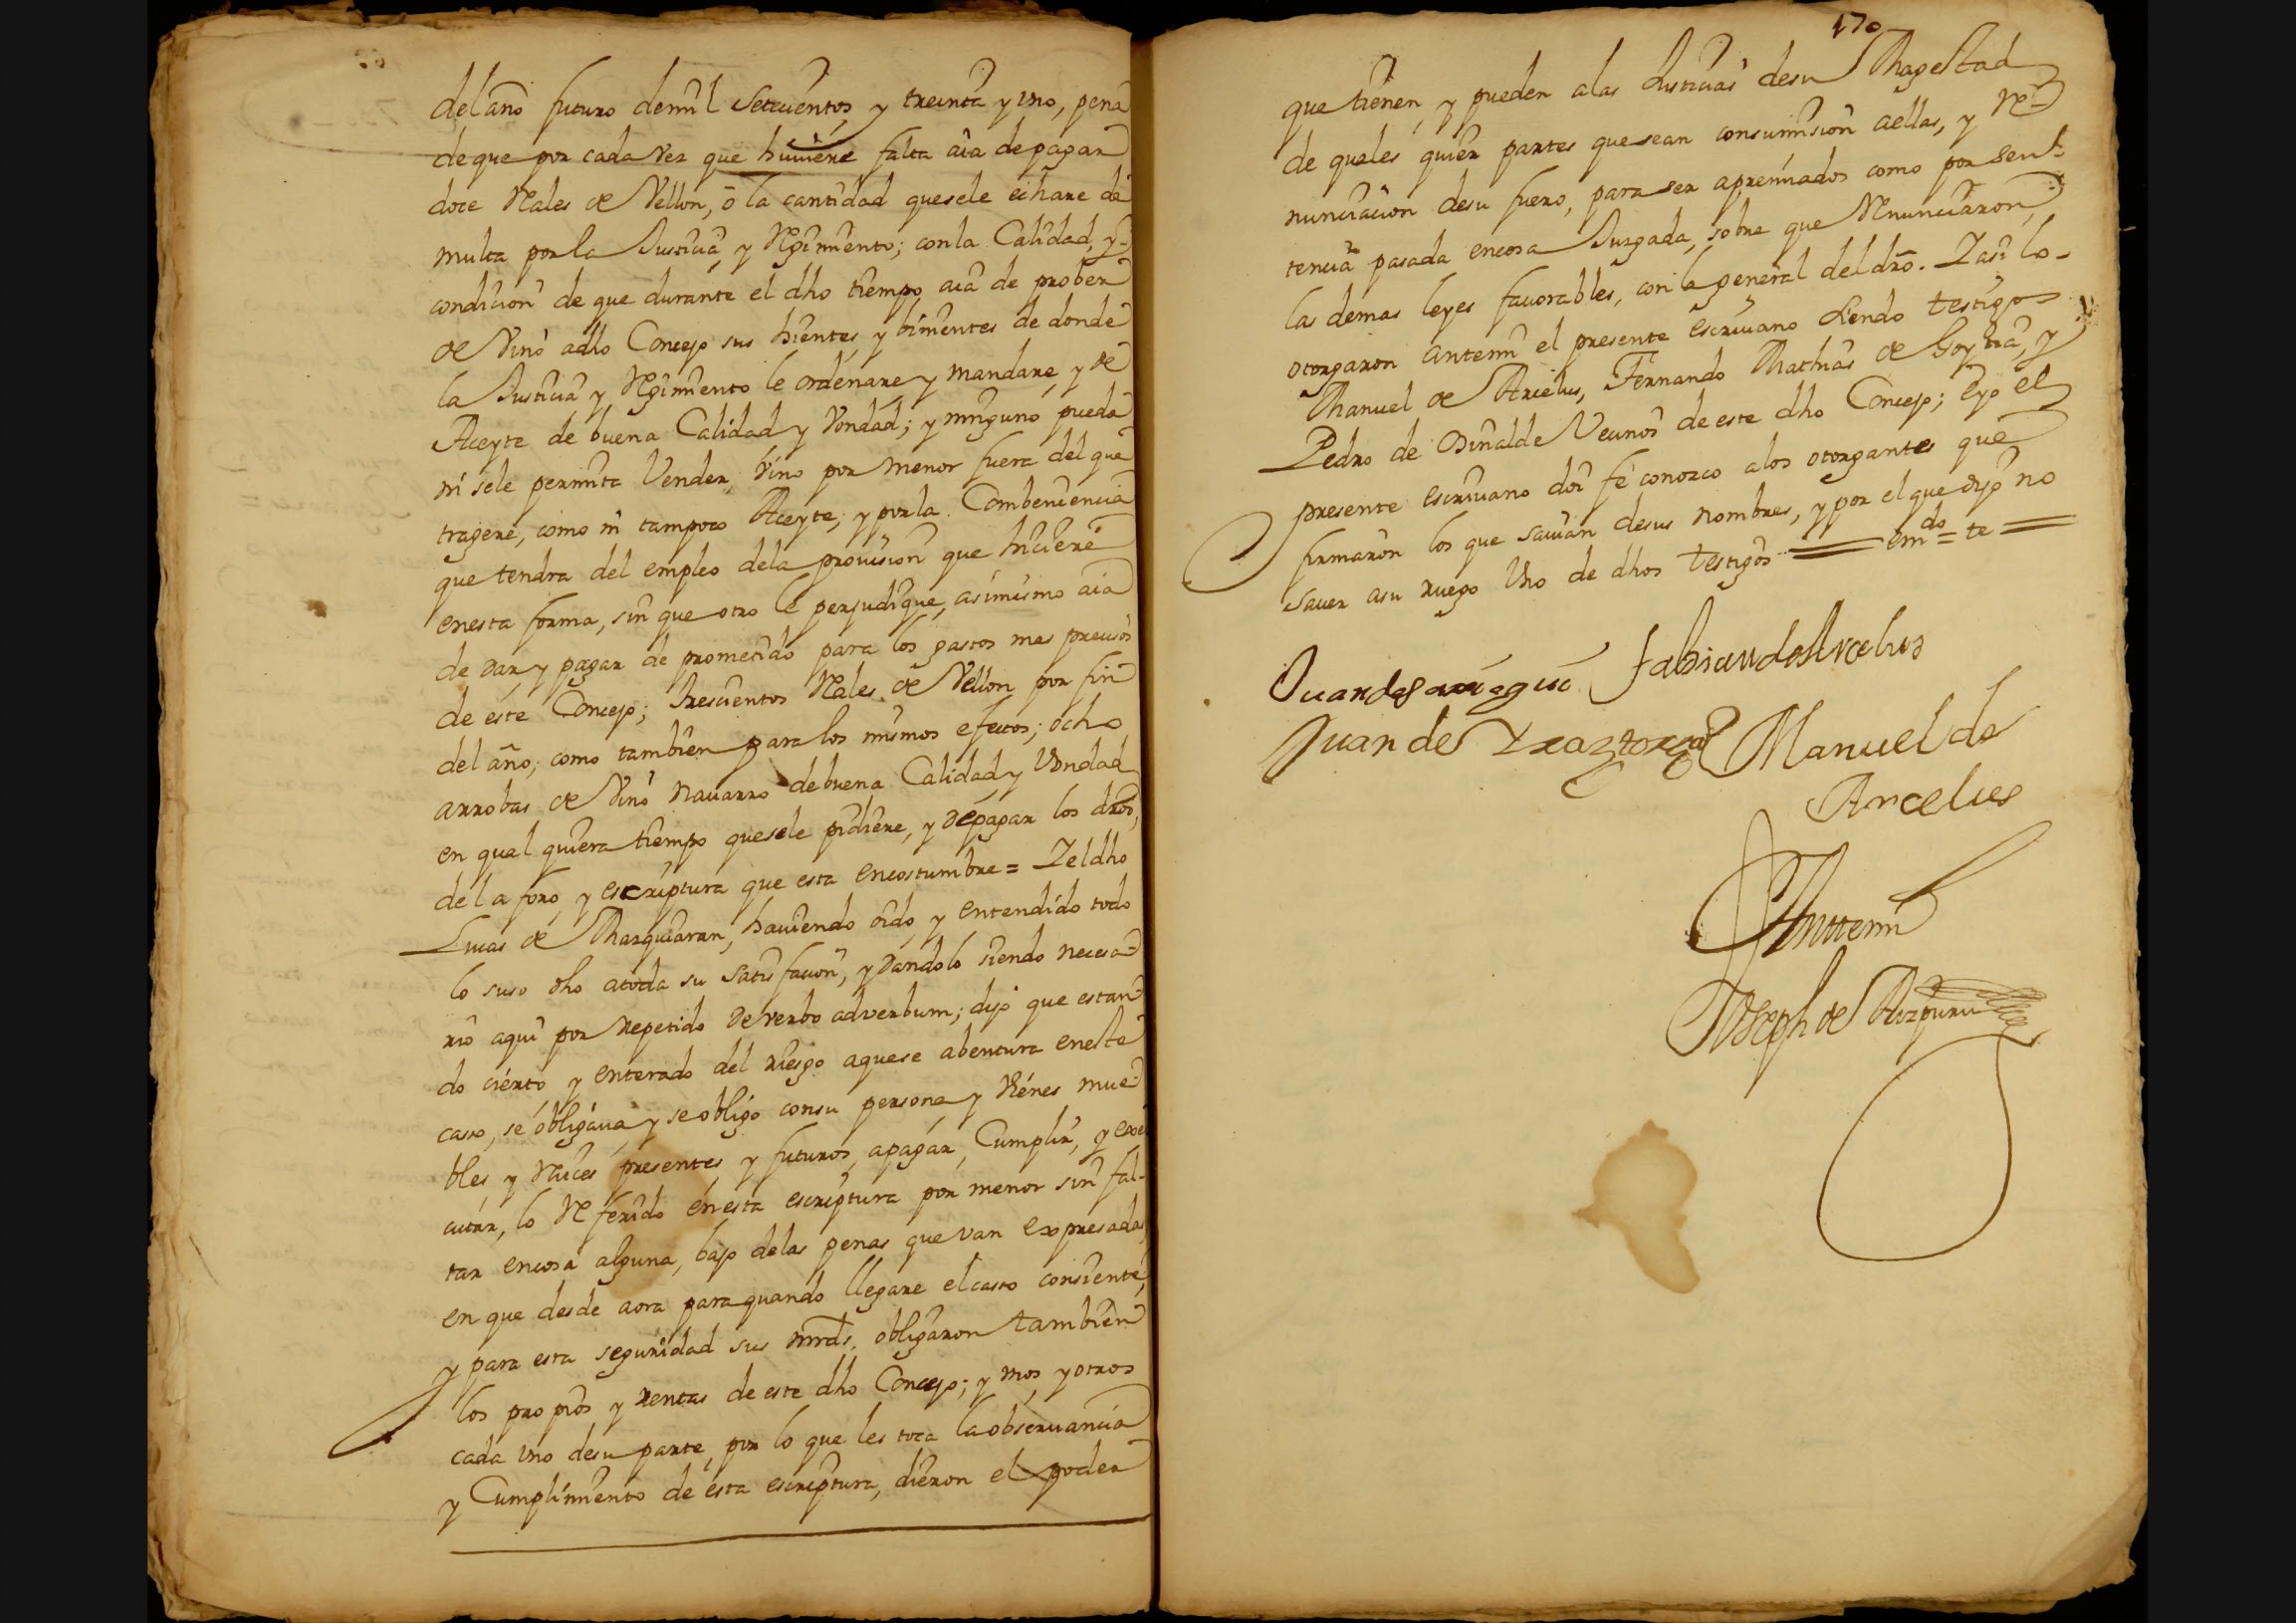 del año futuro demil Setecientos y treinta y Uno, pena
de que por cada vez que huuiere falta aia de pagar
doce Rales de Vellon, o la cantidad quesele echare de
multa por la Justicia, y Regimiento; con la Calidad, y
condicion de que durante el dho tiempo aia de prober
de Vino adho Concejo sus hientes y bimentes de donde
la Justicia y Regimiento le ordenare y mandare, y de
Aceyte de buena Calidad y Vondad; y ninguno pueda
ni sele permita Vender, Vino por menor fuera del que
tragere, como ni tampoco Aceyte; y por la Combeniencia
que tendra del empleo dela prouision que hiciere
enesta forma, sin que otro le perjudique, asimismo aia
de dar y pagar de prometido para los gastos mas precisos
de este Concejo; trescientos Rales de Vellon por fin
del año; como tambien para los mismos efectos; ocho
arrobas de Vino nauarro debuena Calidad y Vondad
en qual quiera tiempo quesele pidiere, y depagar los dros,
del a foro, y escriptura que esta encostumbre = Y el dho
Lucas de Marquiaran, hauiendo oido, y entendido todo
lo suso dho atoda su Satisfacion, y dandolo siendo necesa-
rio aqui por Repetido de verbo adverbum; dijo que estan-
do cierto y enterado del riesgo aquese abentura eneste
caso, se obligaua y se obligo consu persona y Vienes mue-
bles y Raices presentes, y futuros, apagar, Cumplir, y exe
cutar, lo Referido enesta escriptura por menor sin fal-
tar encosa alguna, bajo delas penas que van expresadas
en que desde aora para quando llegare el caso consiente,
y para esta seguridad sus mrds. obligaron tambien
los propios y rentas de este dho Concejo; y unos, y otros
cada uno desu parte, por lo que les toca la obseruancia
y Cumplimiento de esta escriptura, dieron el poder
170
que tienen, y pueden alas Justicias desu Magestad
de quales quier partes que sean consumision aellas, y Re-
nunciacion desu fuero, para ser apremiados como por sen-
tencia pasada encosa Juzgada, sobre que Renunciaron
las demas leyes fauorables, con la general del dro. Y asi lo-
otorgaron antemi el presente escriuano siendo testigos
Manuel de Arcelus, Fernando Mathias de Goytia, y
Pedro de Osinalde Vecinos de este dho Concejo; Eyo el
presente escriuano doi fe conozco alos otorgantes que
firmaron los que sauian desus nombres, y por el que dijo no
sauer asu ruego Uno de dhos testigos = emdo = te =
Fabian de Arcelus
Juan de Manuel de
Arcelus
Anttemi
Joseph de Aizpuru